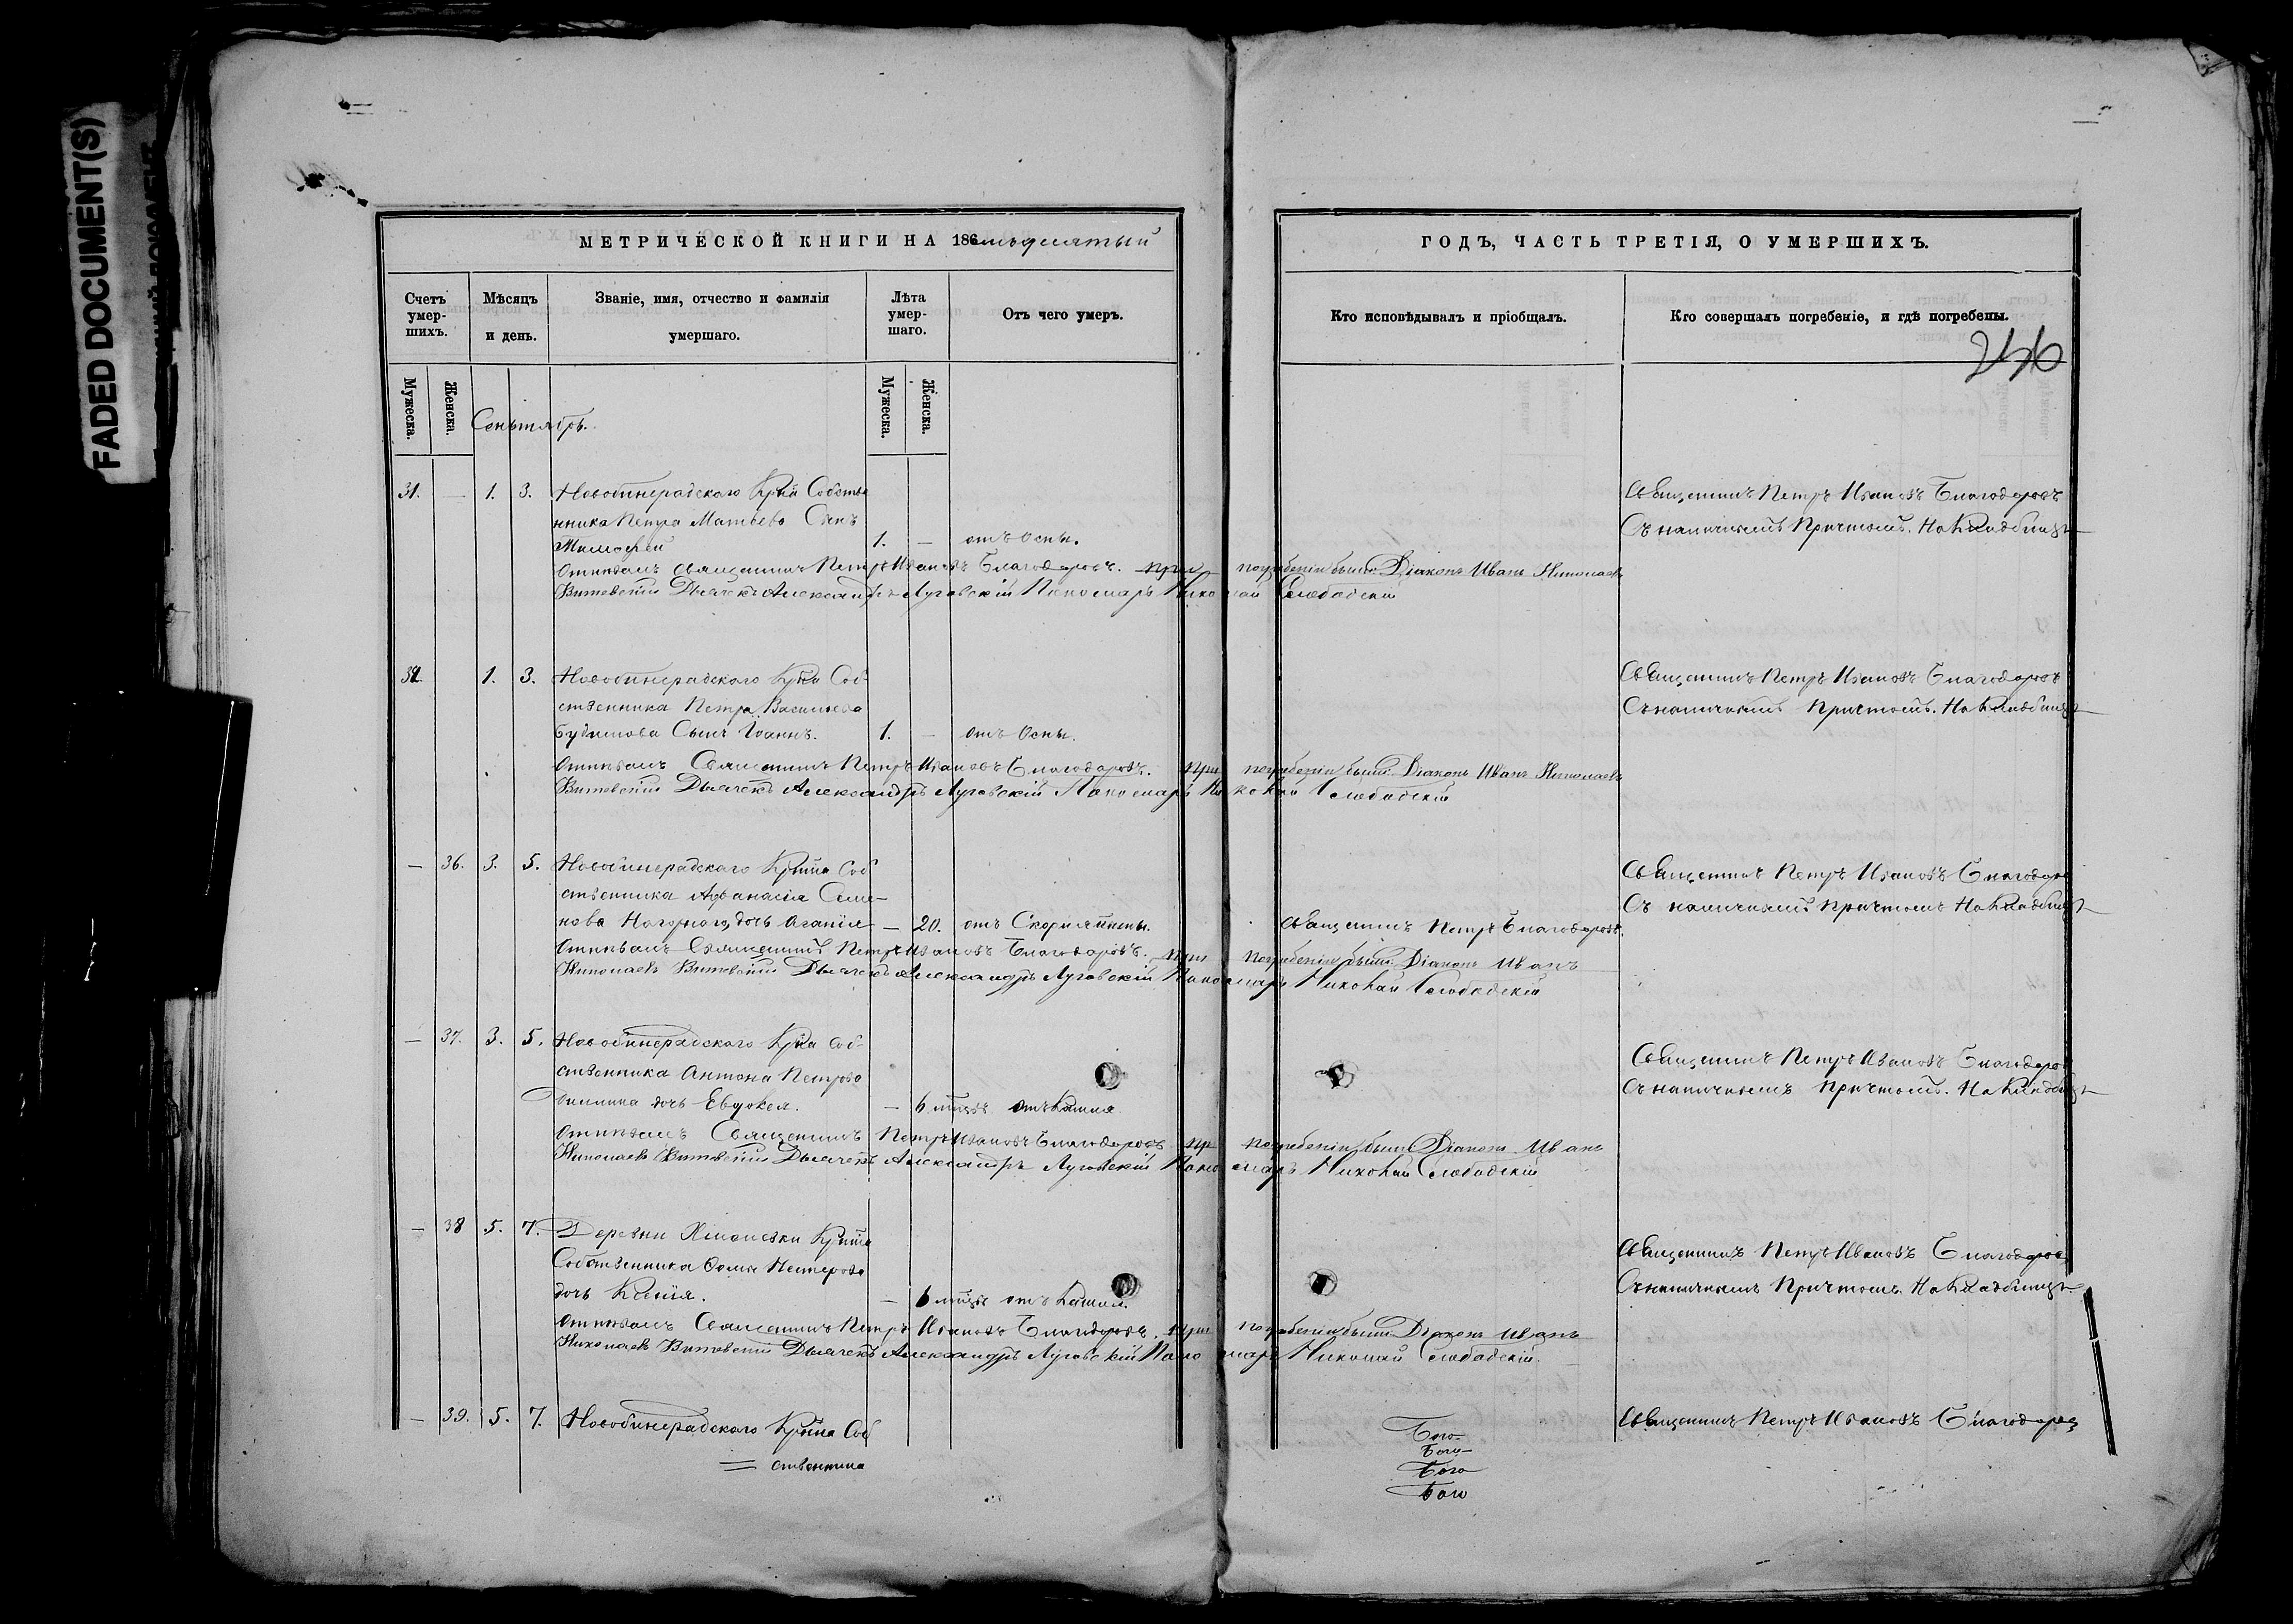 FADED DOCUMENT(S)
МЕТРИЧЕСКОЙ КНИГИ НА 186 мьдесятый
Счетъ умер-шихъ.
Мѣсяцъ и день.
Званіе, имя, отчество и фамилія умершаго.
Лѣта умер-шаго.
Отъ чего умеръ.
Мужеска.
Женска.
Мужеска.
Женска.
Сеньтябрь.
31. — 1. 3. Нововинерадскаго Кр̃на Собстве
нника Петра Матвѣева Сынъ
Тимофей 1. — отъ Оспы.
Отпѣвалъ Священникъ Петръ Ивановъ Благодаровъ. при погребеніи были: Діаконъ Иванъ Николаевъ
Витевскій Дьячекъ Александръ Луговскій Пономарь Николай Слободскій
32. 1. 3. Нововинерадскаго Кр̃на Соб
ственника Петра Васильева
Сынъ Іоаннъ. 1. — отъ Оспы.
Отпѣвалъ Священникъ Петръ Ивановъ Благодаровъ. при погребеніи были: Діаконъ Иванъ Николаевъ
Витевскій Дьячекъ Александръ Луговскій Пономарь Николай Слободскій
— 36. 3. 5. Нововинерадскаго Кр̃на Соб
ственника Афанасія Семе-
нова Нагорнаго, дочь Агапія — 20. отъ
Отпѣвалъ Священникъ Петръ Ивановъ Благодаровъ. при погребеніи были: Діаконъ Иванъ
Николаевъ Витевскій Дьячекъ Александръ Луговскій Пономарь Николай Слободскій
— 37. 3. 5. Нововинерадскаго Кр̃на Соб-
ственника Антона Петрова
дочь Евдокея. — 6 мц̃въ отъ Кашля
Отпѣвалъ Священникъ Петръ Ивановъ Благодаровъ при погребеніи были Діаконъ Иванъ
Николаевъ Витевскій Дьячекъ Александръ Луговскій Пономарь Николай Слободскій
— 38 5. 7. Деревни Кр̃на
Собственника Фомы Нестерова
дочь — 6 мц̃въ отъ Кашля.
Отпѣвалъ Священникъ Петръ Ивановъ Благодаровъ. при погребеніи были Діаконъ Иванъ
Николаевъ Витевскій Дьячекъ Александръ Луговскій Пономарь Николай Слободскій.
— 39. 5. 7. Нововинерадскаго Кр̃на Соб
= ственника
ГОДЪ, ЧАСТЬ ТРЕТІЯ, О УМЕРШИХЪ.
Кто исповѣдывалъ и пріобщалъ.
Кто совершалъ погребеніе, и гдѣ погребены.
Священникъ Петръ Ивановъ Благодаровъ
Съ наличнымъ Причтомъ. На Кладбищѣ
Священникъ Петръ Ивановъ Благодаровъ
Съ наличнымъ Причтомъ. На Кладбищѣ
Священникъ Петръ Благодаровъ.
Священникъ Петръ Ивановъ Благодаро
Съ наличнымъ Причтомъ На Кладбищѣ
Священникъ Петръ Ивановъ Благодаров
Съ наличнымъ Причтомъ. На Кладбищѣ
Священникъ Петръ Ивановъ Благодаров
Съ наличнымъ Причтомъ. На Кладбищѣ
Священникъ Петръ Ивановъ Благодаров
Бого-
Бого-
Бого
Бого